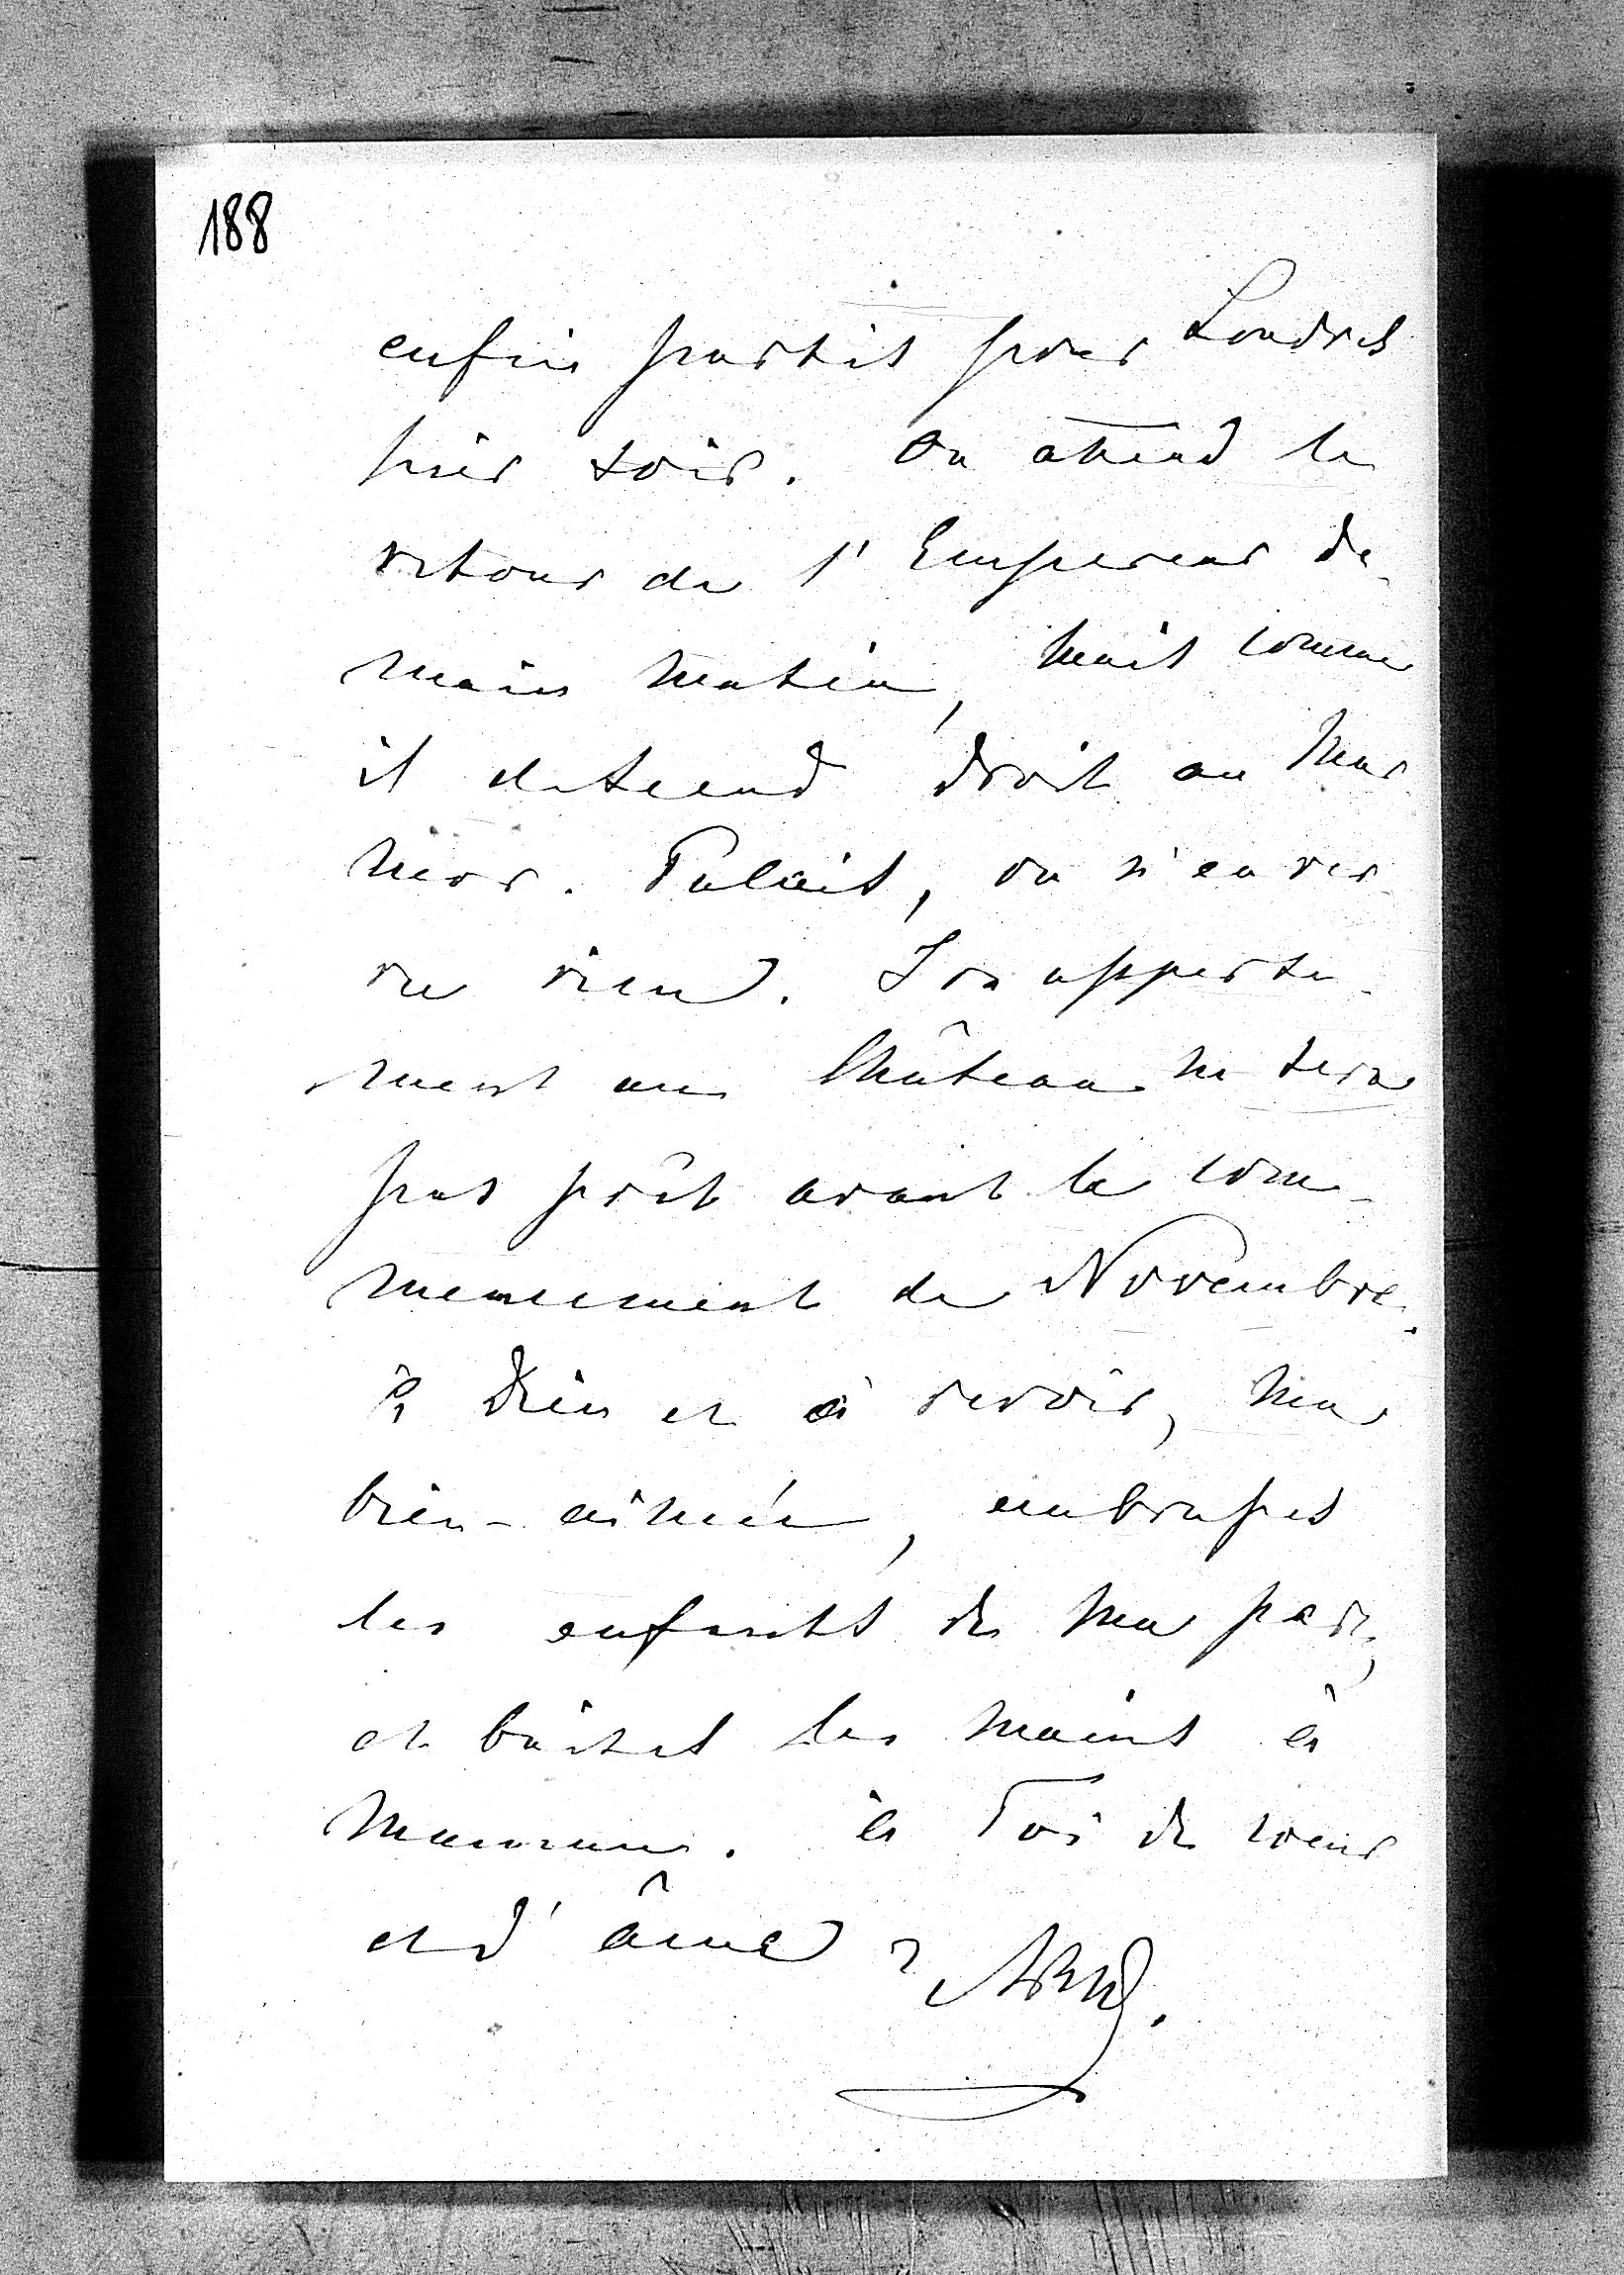 188
enfin partis pour Londres
hier soir. On attend le
retour de l'Empereur de-
main matin, mais comme
il descend droit au Mar
mor. Palais, on n'en ver
ra rien. Son apparte-
ment au Château ne sera
pas prêt avant le com-
mencement de Novembre.
à Dieu et à revoir, ma
bien-aimée, embrasses
les enfants de ma part,
et baises les mains à
Maman. à Toi de coeur
et d'âme